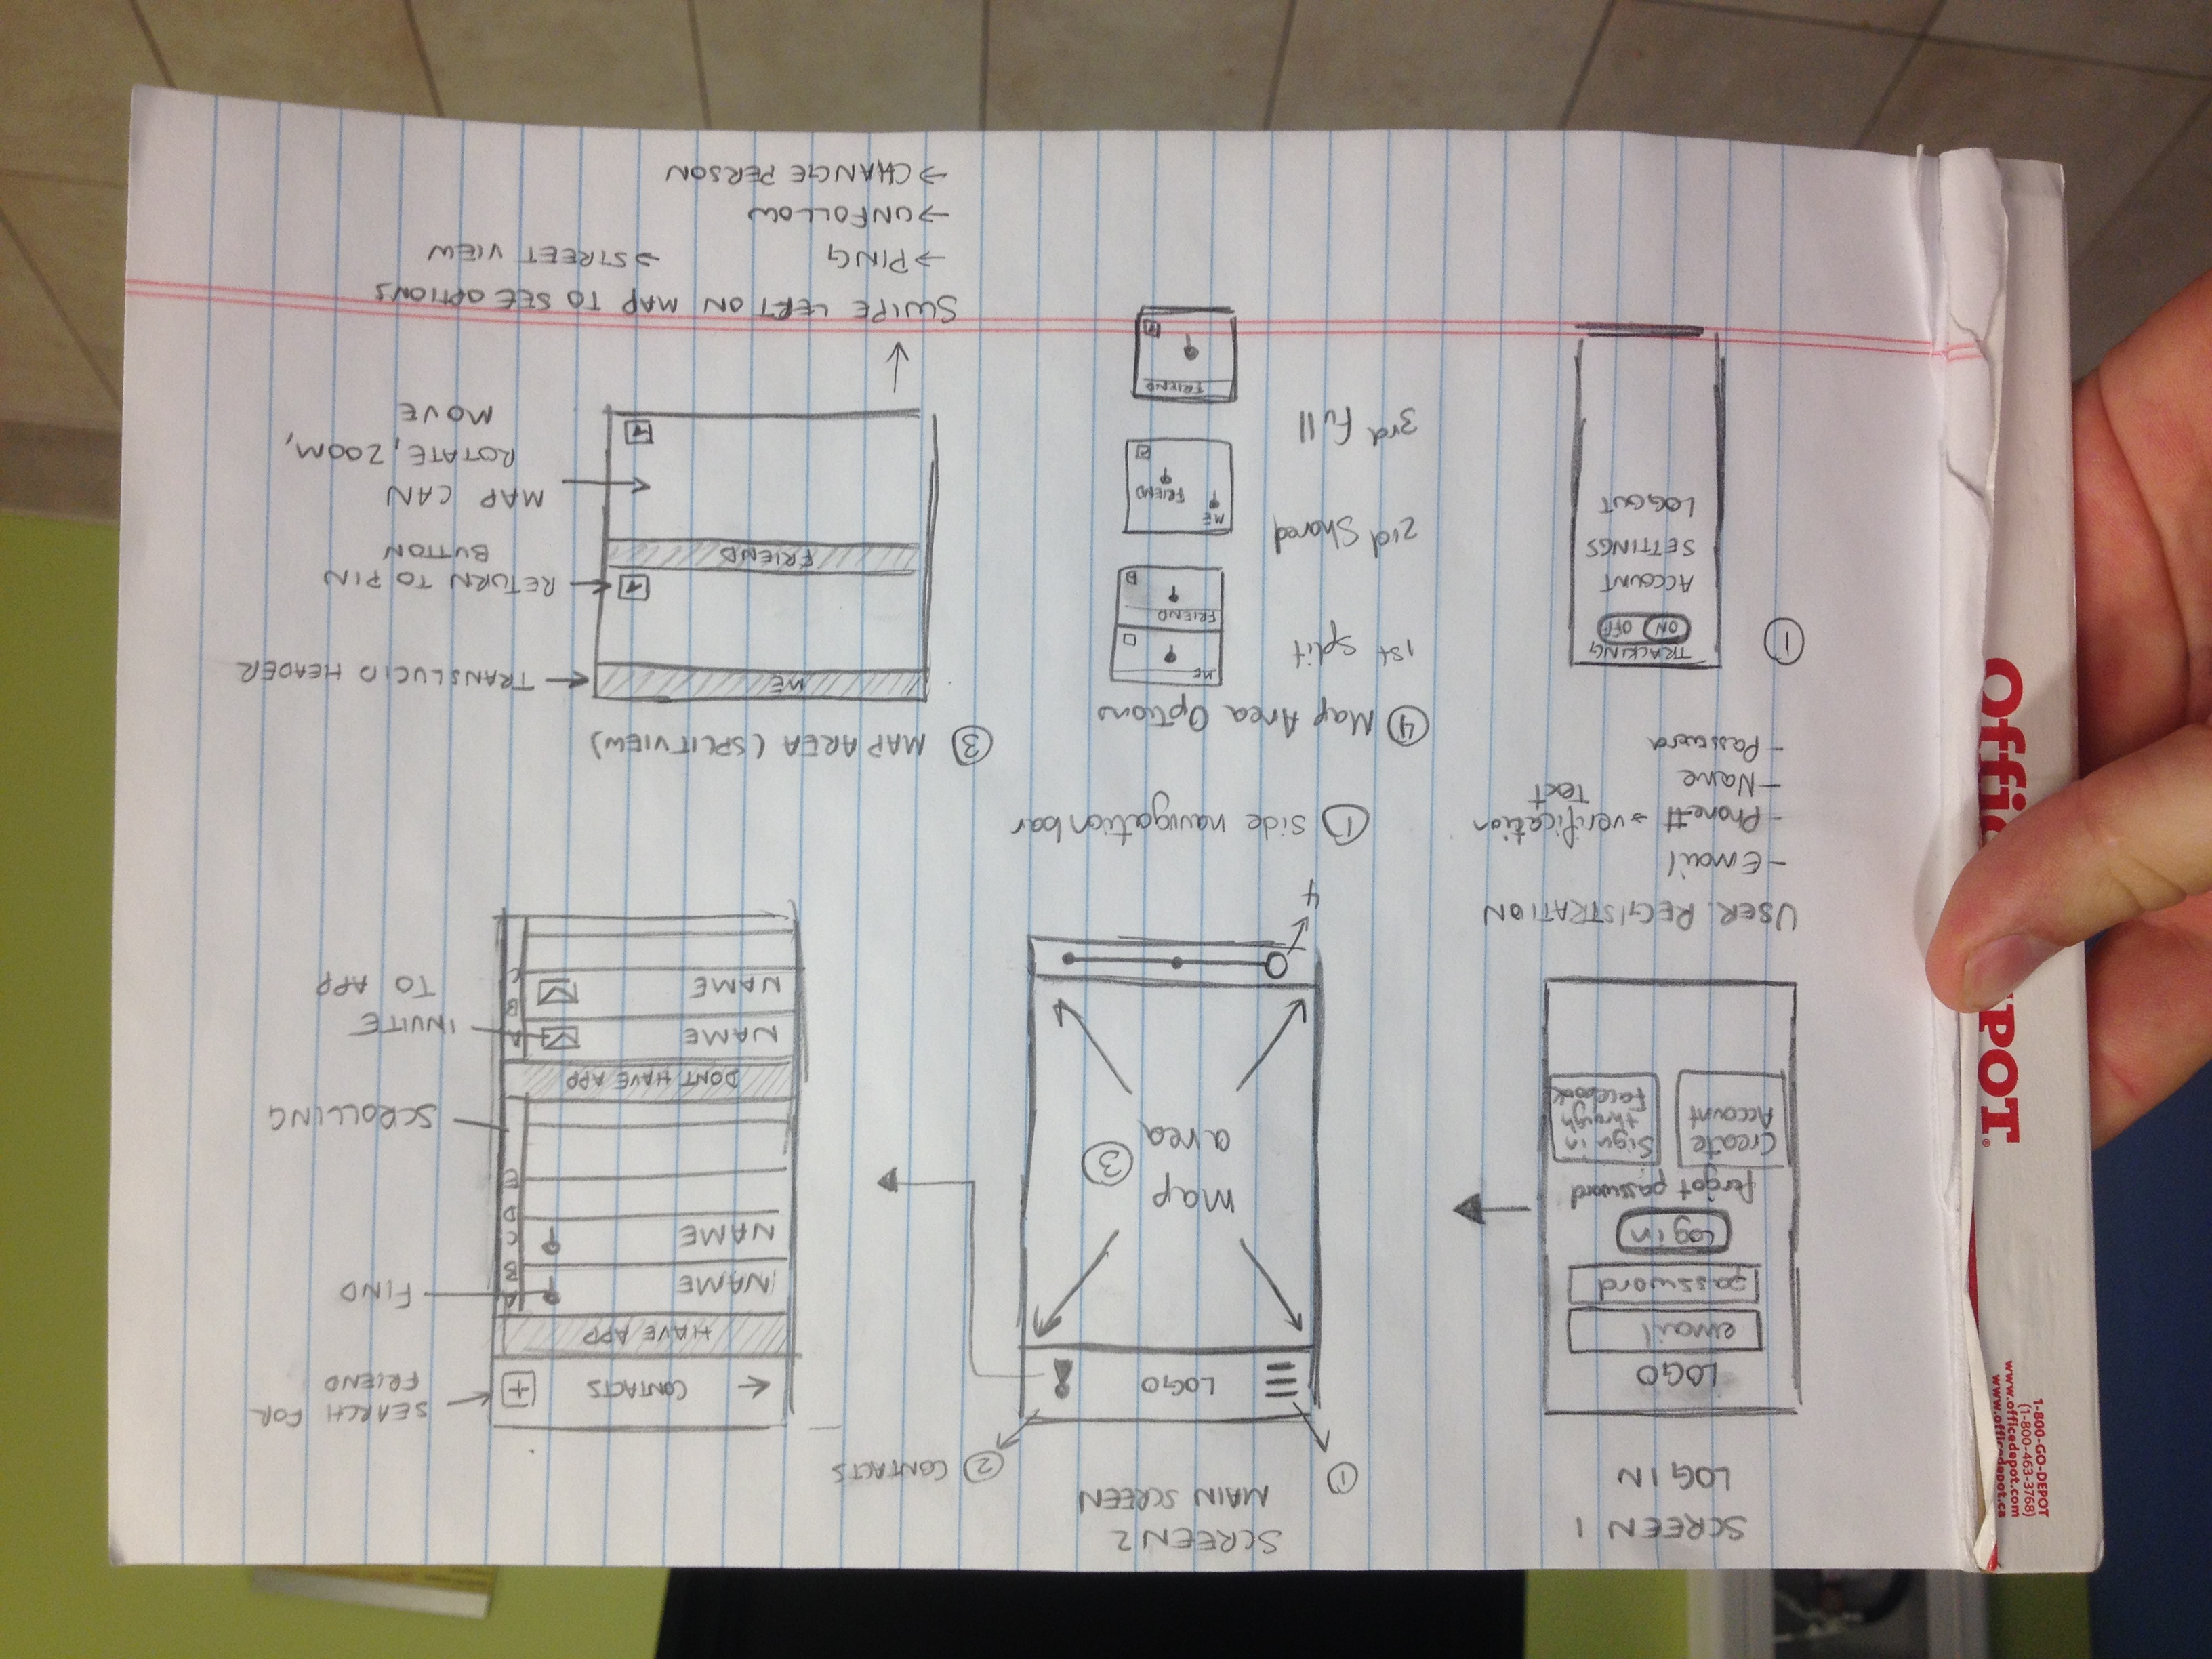 1-800-GO-DEPOT
(1-800-463-3768)
www.officedepot.com
www.officedepot.ca
SCREEN 1
LOG IN
LOGO
email
password
Log in
forgot password
Create
Account
Sign in
through
Facebook
USER REGISTRATION
- Email
- Phone # → verification
Text
- Name
- Password
1
TRACKING
ON OFF
ACCOUNT
SETTINGS
LOGOUT
SCREEN 2
MAIN SCREEN
1
2 CONTACTS
LOGO
map
area
3
4
1 side navigation bar
4 Map Area Options
1st split
ME
FRIEND
2rd Shared
ME
FRIEND
3rd Full
FRIEND
← CONTACTS +
SEARCH FOR
FRIEND
HAVE APP
NAME
NAME
A
B
C
D
E
FIND
SCROLLING
DONT HAVE APP
NAME
NAME
A
B
C
INVITE
TO APP
3 MAP AREA (SPLIT VIEW)
ME
TRANSLUCID HEADER
RETURN TO PIN
BUTTON
FRIEND
MAP CAN
ROTATE, ZOOM,
MOVE
SWIPE LEFT ON MAP TO SEE OPTIONS
→ PING
→ STREET VIEW
→ UNFOLLOW
→ CHANGE PERSON